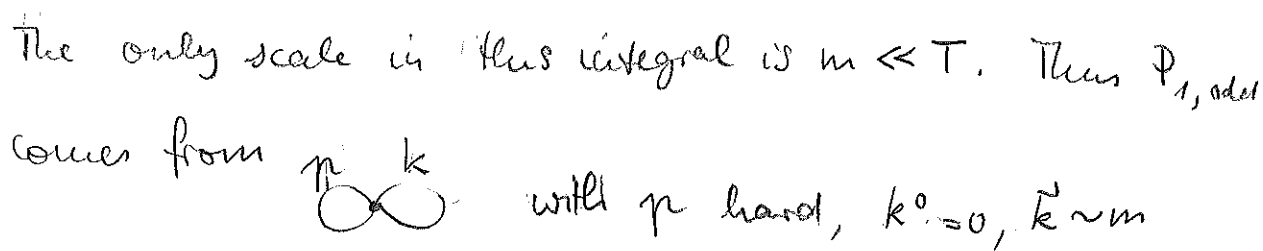 The only scale in this integral is m ≪ T. Thus P₁,odd
comes from p k with p hard, k⁰=0, k⃗ ~ m